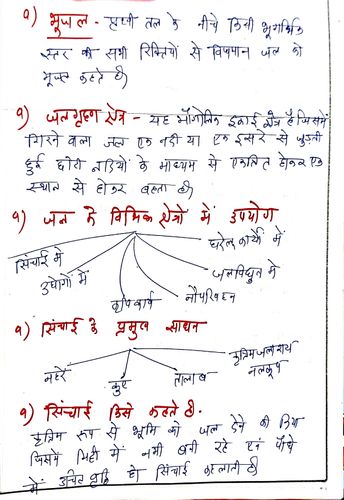 १) भूजल - पृथ्वी तल के नीचे किसी भूगर्भिक
स्तर की सभी रिक्तियों से विधमान जल को
भूजल कहते है।
१) जलग्रहण क्षेत्र - यह भौगोलिक इकाई क्षेत्र है जिसमें
गिरने वाला जल एक नदी या एक दूसरे से जुडती
हुई छोटी नदियों के माध्यम से एकत्रित होकर एक
स्थान से होकर बहता है।
१) जल के विभिन्न क्षेत्रों में उपयोग
सिंचाई में
उद्योगों में
कृषि कार्य
नौपरिवहन
जलविद्युत में
घरेलु कार्यो में
१) सिंचाई के प्रमुख साधन
नहरें
कुएँ
तालाब
कृत्रिम जलाशय
नलकूप
१) सिंचाई किसे कहते है.
कृत्रिम रूप से भूमि को जल देने की क्रिया
जिससे मिट्टी में नमी बनी रहे एवं पौधे
में उचित वृद्धि हो सिंचाई कहलाती है।